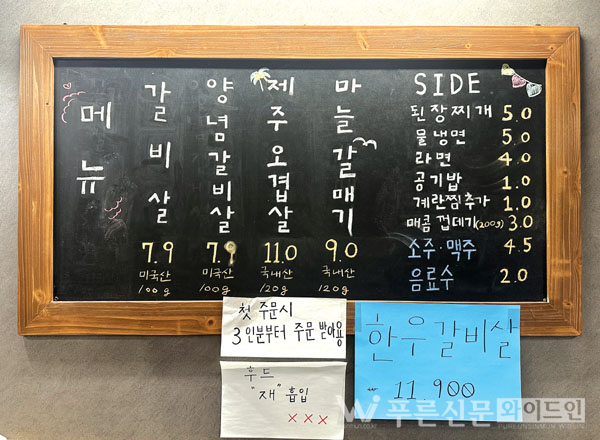 메뉴
갈비살
7.9
미국산
100g
양념갈비살
7.9
미국산
100g
제주오겹살
11.0
국내산
120g
마늘갈매기
9.0
국내산
120g
SIDE
된장찌개 5.0
물냉면 5.0
라면 4.0
공기밥 1.0
계란찜추가 1.0
매콤 껍데기(200g) 3.0
소주·맥주 4.5
음료수 2.0
첫 주문시
3인분부터 주문 받아용
후드
"재" 흡입
×××
한우갈비살
11.900
푸른신문 와이드인